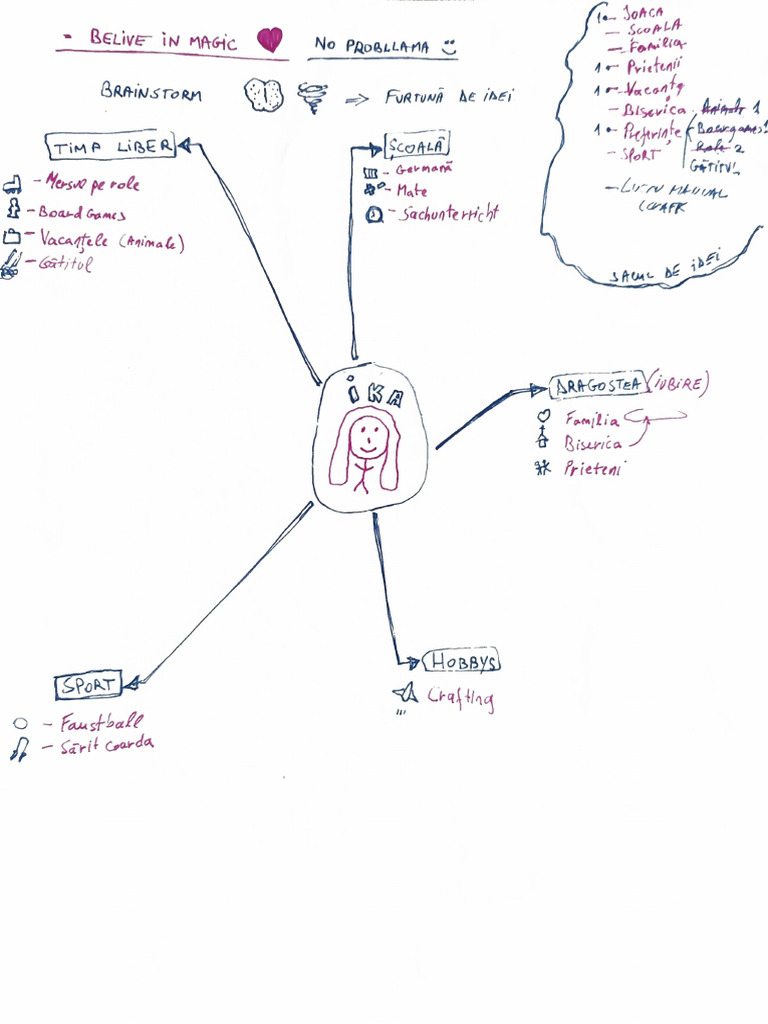 - BELIVE IN MAGIC
NO PROBLLAMA
BRAINSTORM
=> FURTUNĂ DE IDEI
TIMP LIBER
- Mersul pe role
- Board Games
- Vacanțele (Animale)
- Gătitul
ȘCOALĂ
- Germană
- Mate
- Sachunterricht
1 - JOACA
- SCOALA
- Familia
1 - Prietenii
1 - Vacanța
- Biserica
1 - Preferințe
- SPORT
Animale 1
Boardgames 1
Role 2
GĂTITUL
- LUCRU MANUAL
SACUL DE IDEI
IKA
DRAGOSTEA (IUBIRE)
Familia
Biserica
Prieteni
SPORT
- Faustball
- Sărit coarda
HOBBYS
Crafting